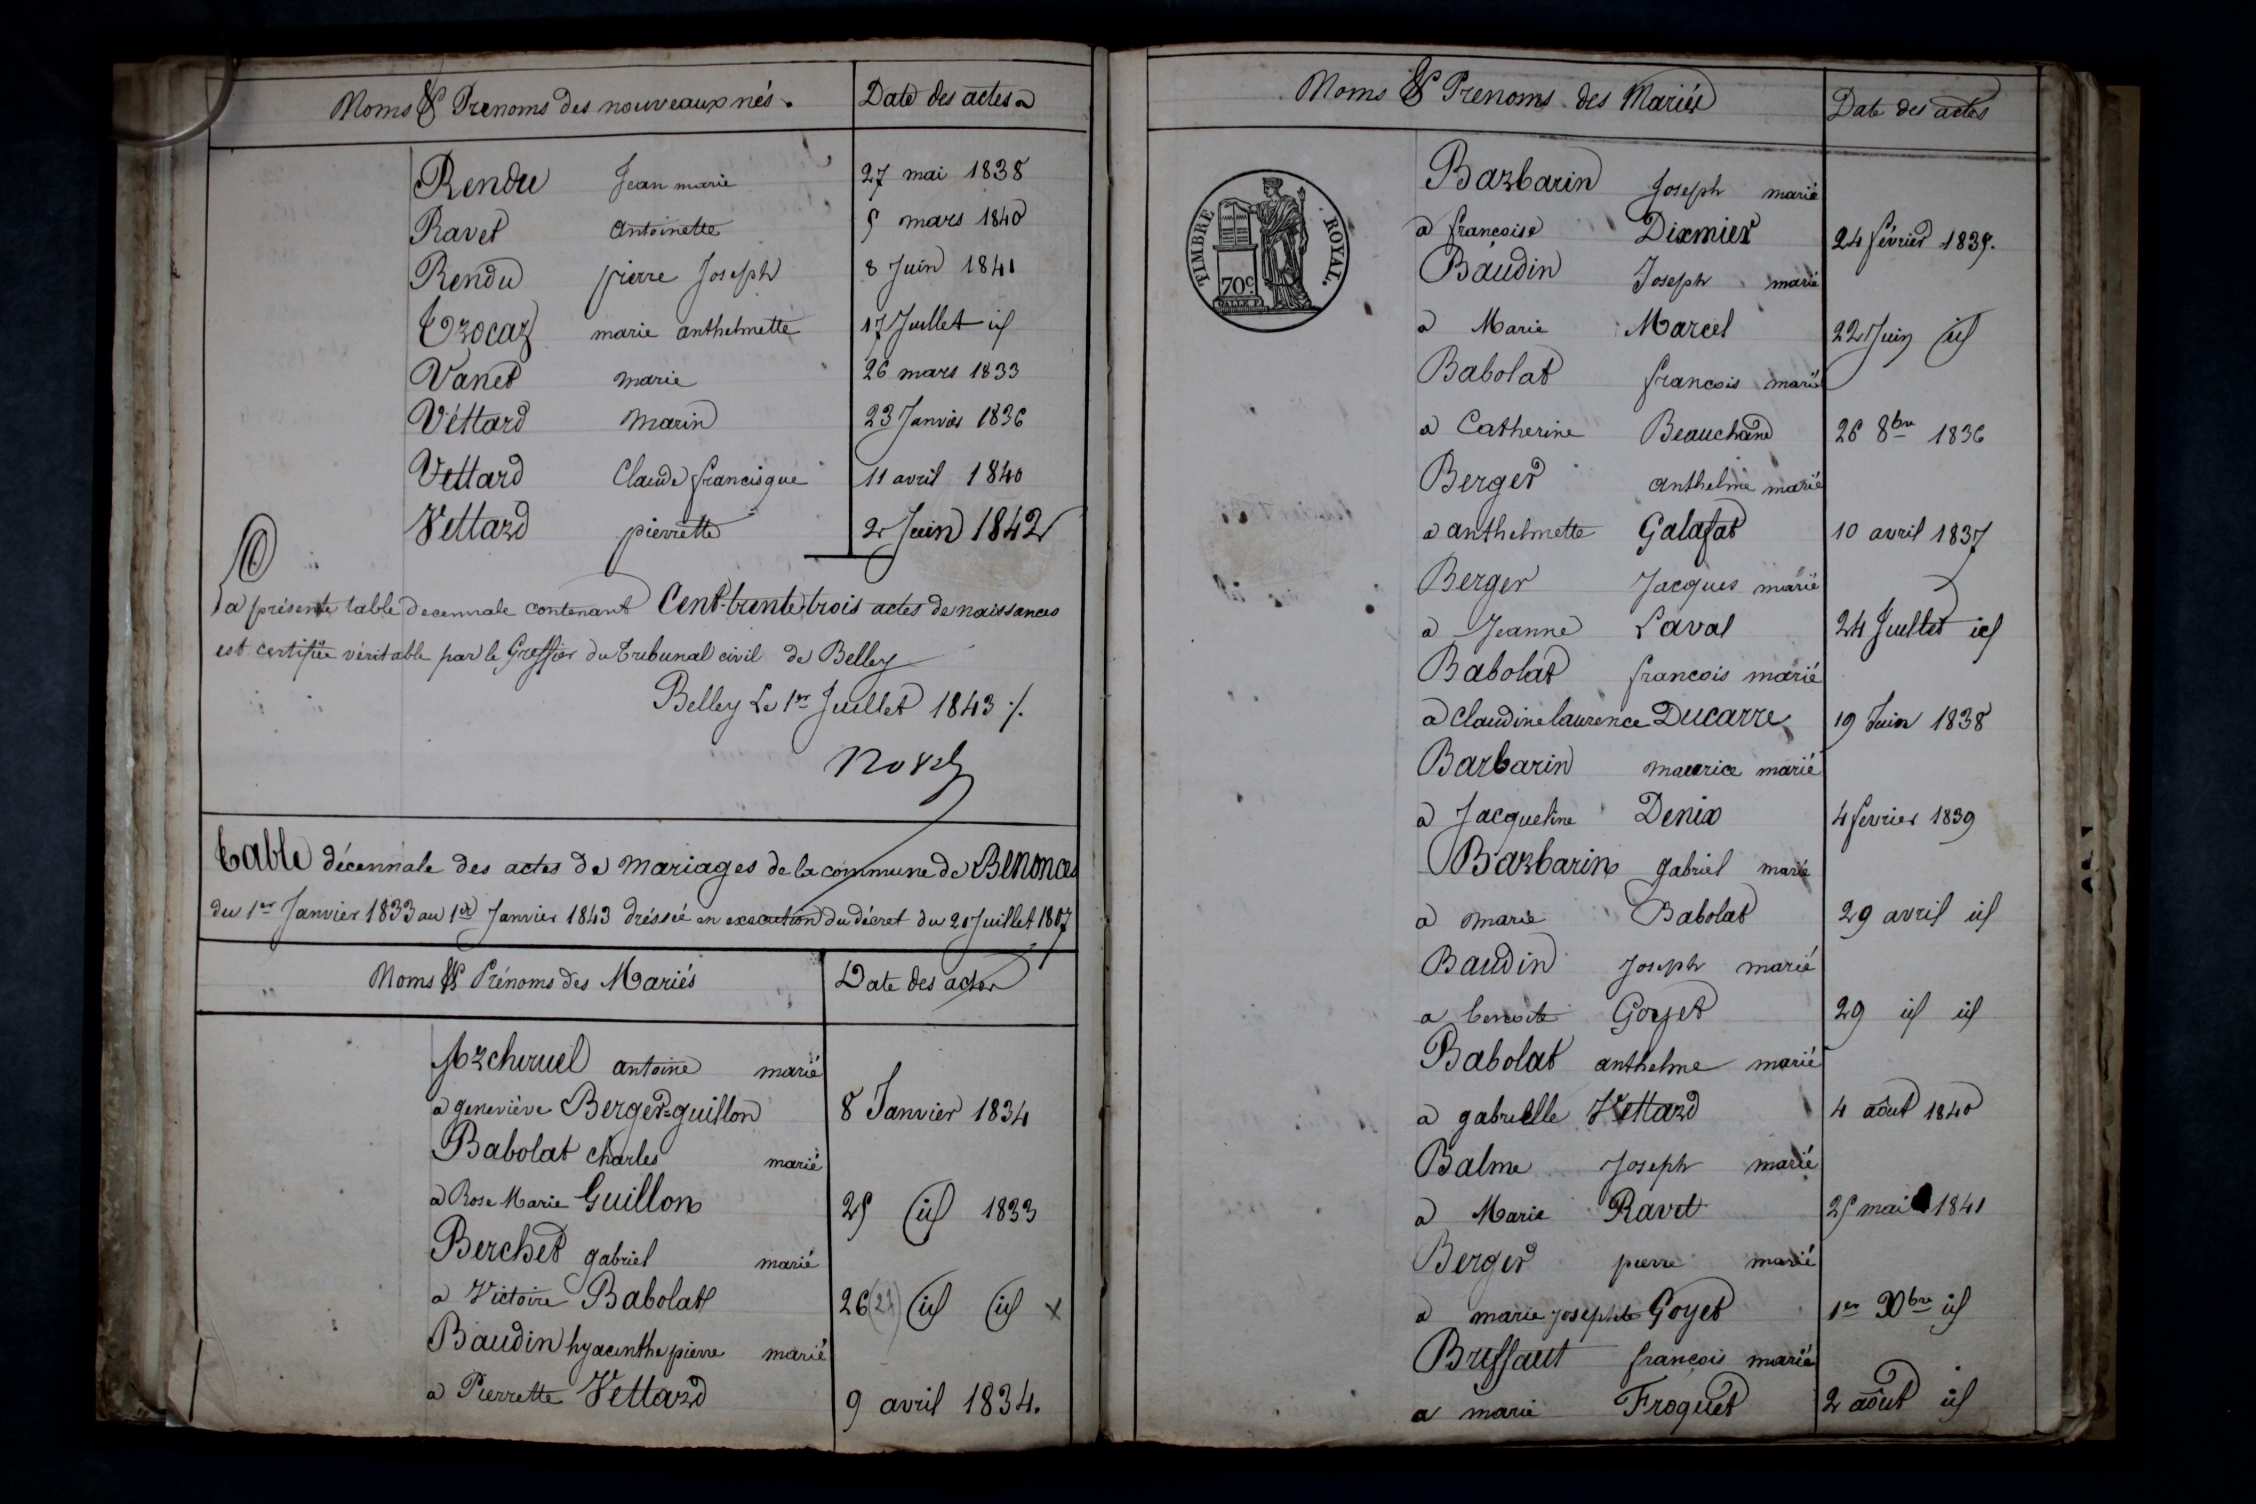 Noms & Prenoms des nouveaux nés. Date des actes
Rendu Jean marie 27 mai 1838
Ravet antoinette 5 mars 1840
Rendu pierre Joseph 8 Juin 1841
Trocaz marie anthelmette 17 Juillet id
Vanet marie 26 mars 1833
Véttard Marin 23 Janvier 1836
Vettard Claude francisque 11 avril 1840
Vettard pierrette 2 Juin 1842
La présente table decennale contenant Cent-trente trois actes de naissances
est certifiée véritable par le Greffier du Tribunal civil de Belley
Belley Le 1er Juillet 1843 ./.
Table décennale des actes de Mariages de la commune de Benonces
du 1er Janvier 1833 au 1er Janvier 1843 dréssée en execution du décret du 20 Juillet 1807
Noms & Prénoms des Mariés Date des actes
antoine marié
a geneviève Berger-guillon 8 Janvier 1834
Babolat charles marié
a Rose Marie Guillon 25 id 1833
Berchet gabriel marié
a Victoire Babolat 26 (27) id id x
Baudin hyacinthe pierre marié
a Pierrette Vettard 9 avril 1834.
Noms & Prenoms des Mariés Date des actes
TIMBRE ROYAL.
70c.
Barbarin Joseph marié
a francoise Dixmier 24 février 1835.
Baudin Joseph marié
a Marie Marcel 22 Juin id
Babolat francois marié
a Catherine Beauchand 26 8bre 1836
Berger anthelme marié
a anthelmette Galafat 10 avril 1837
Berger Jacques marié
a Jeanne Laval 24 Juillet id
Babolat francois marié
a Claudine laurence Ducarre 19 Juin 1838
Barbarin maurice marié
a Jacqueline Denix 4 fevrier 1839
Barbarin gabriel marié
a marie Babolat 29 avril id
Baudin Joseph marié
a benoite Goyet 29 id id
Babolat anthelme marié
a gabrielle Vettard 4 août 1840
Balme Joseph marié
a Marie Ravet 25 mai 1841
Berger pierre marié
a marie josephte Goyet 1er Xbre id
Bruffaut françois marié
a marie Froquet 2 août id